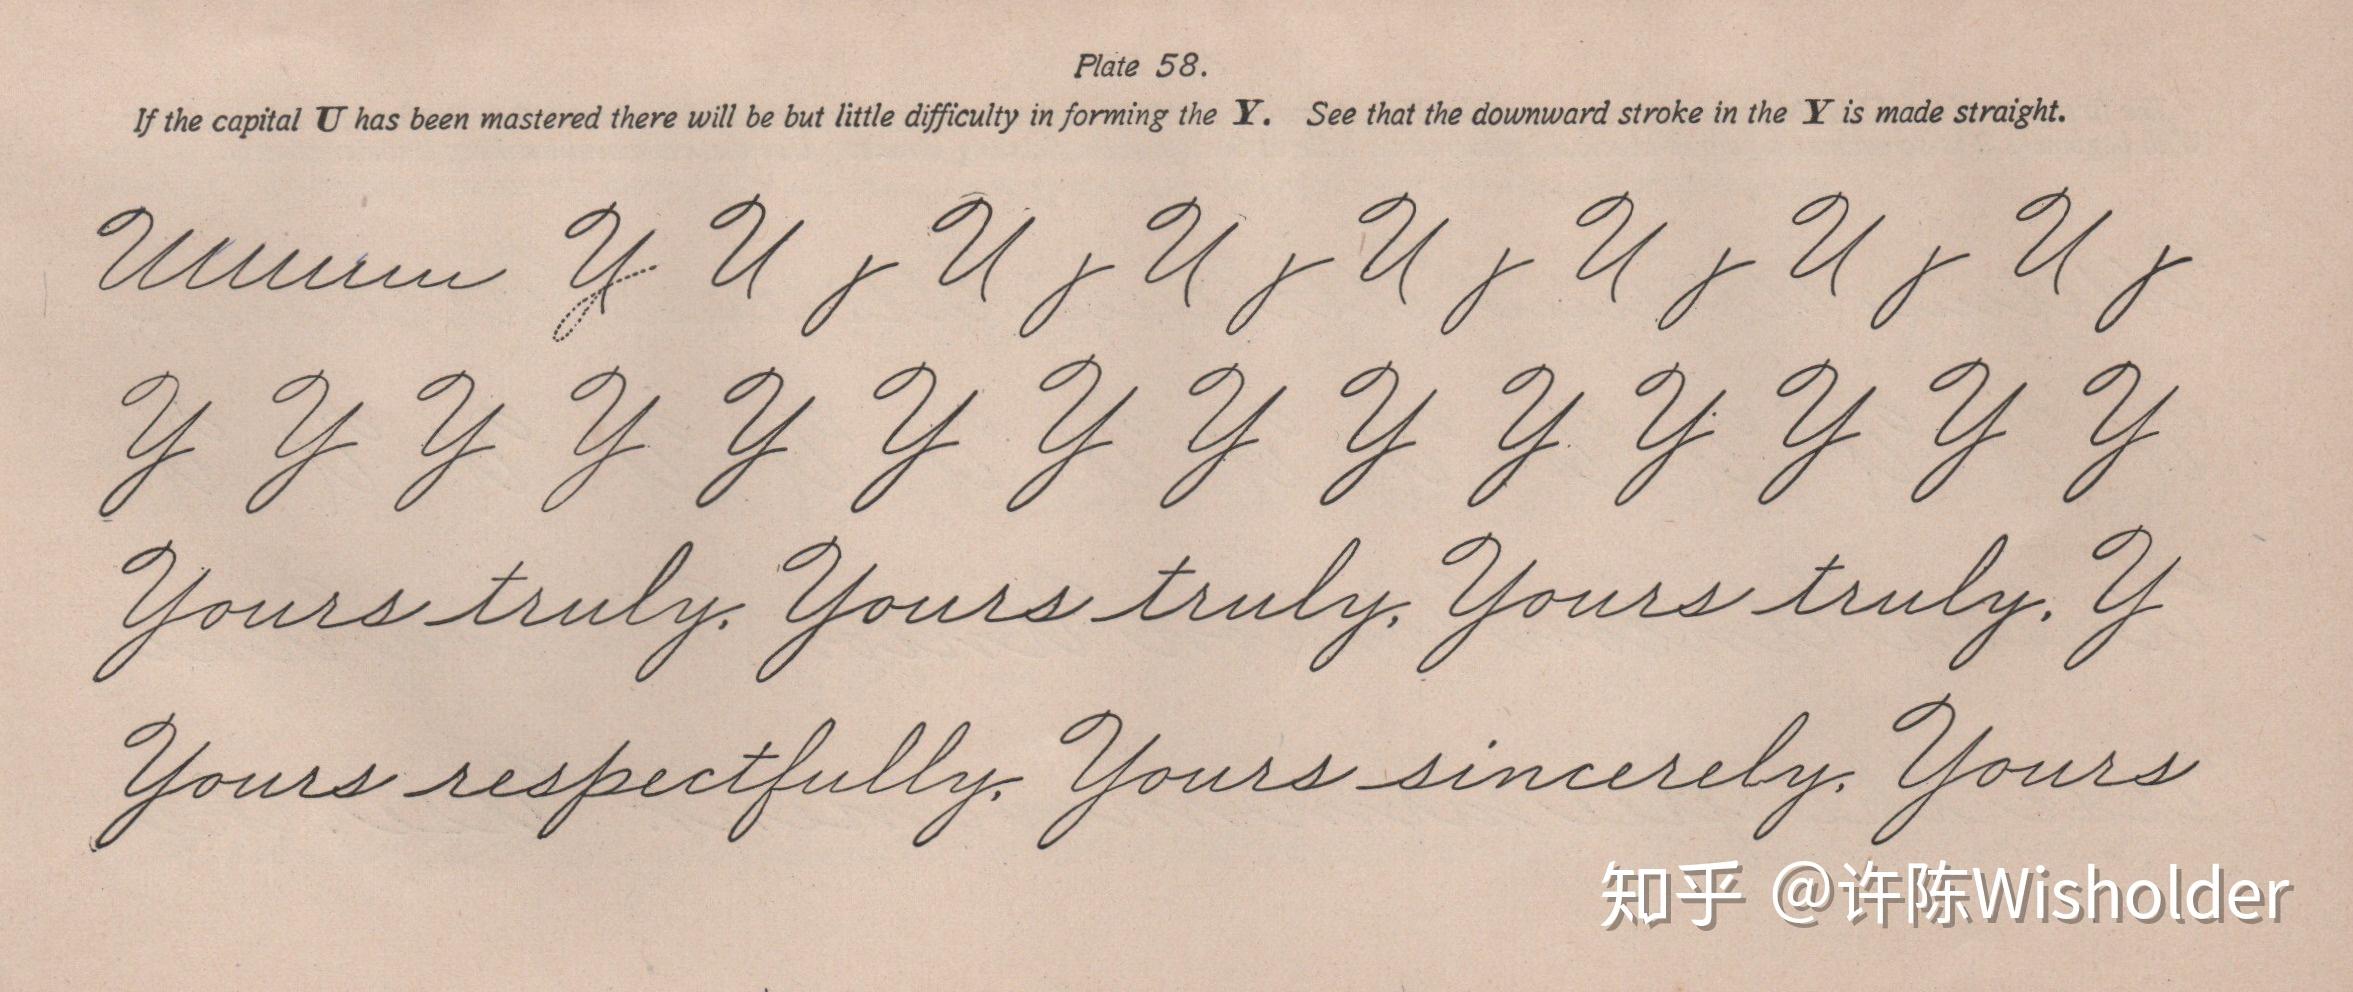 Plate 58.
If the capital U has been mastered there will be but little difficulty in forming the Y. See that the downward stroke in the Y is made straight.
Uuuuuu Y U j U j U j U j U j U j U j
Y Y Y Y Y Y Y Y Y Y Y Y Y Y
Yours truly. Yours truly. Yours truly. Y
Yours respectfully. Yours sincerely. Yours
知乎 @许陈Wisholder